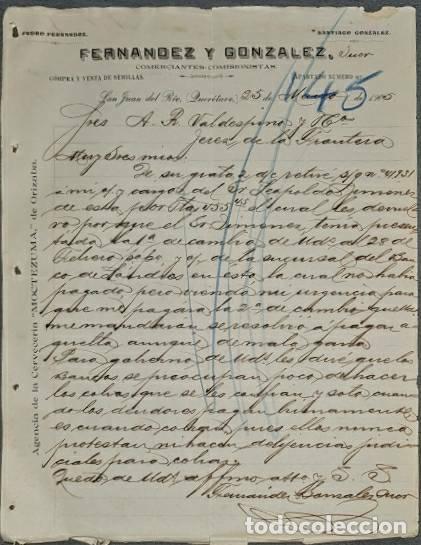 PEDRO FERNANDEZ.
SANTIAGO GONZALEZ.
FERNANDEZ Y GONZALEZ, Sucr
COMERCIANTES-COMISIONISTAS.
COMPRA Y VENTA DE SEMILLAS.
APARTADO NUMERO
145
San Juan del Río, Querétaro, 25 de de
Sres A. R. Valdespino y Hº
Jerez de la Frontera
Muy Sres mios:
De su grata 2 de
á mi o/ y cargo del Sr Leopoldo Jimenes
de esta por Pta el cual les devuel
vo por que el Sr Jimenes, tenia
1ª de cambio de Uds al 28 de
Febrero y o/ de la sucursal del Ban
co de Londres en esta la cual no habia
pagado, pero viendo mi urgencia para
que me pagara la 2ª de cambio que Uds
me mandaran se resolvio á pagar a
quella aunque de mala gana
Para gobierno de Uds les diré que los
Bancos se preocupan poco de hacer
los cobros que se les confian y solo cuan
do los deudores pagan buenamente
es cuando cobran, pues ellos nunca
protestan ni hacen diligencias judi
ciales para cobrar
Quedo de Uds affmo atto y S. S.
Fernandez y Gonzalez Sucr
Agencia de la Cervecería "MOCTEZUMA," de Orizaba.
todocoleccion